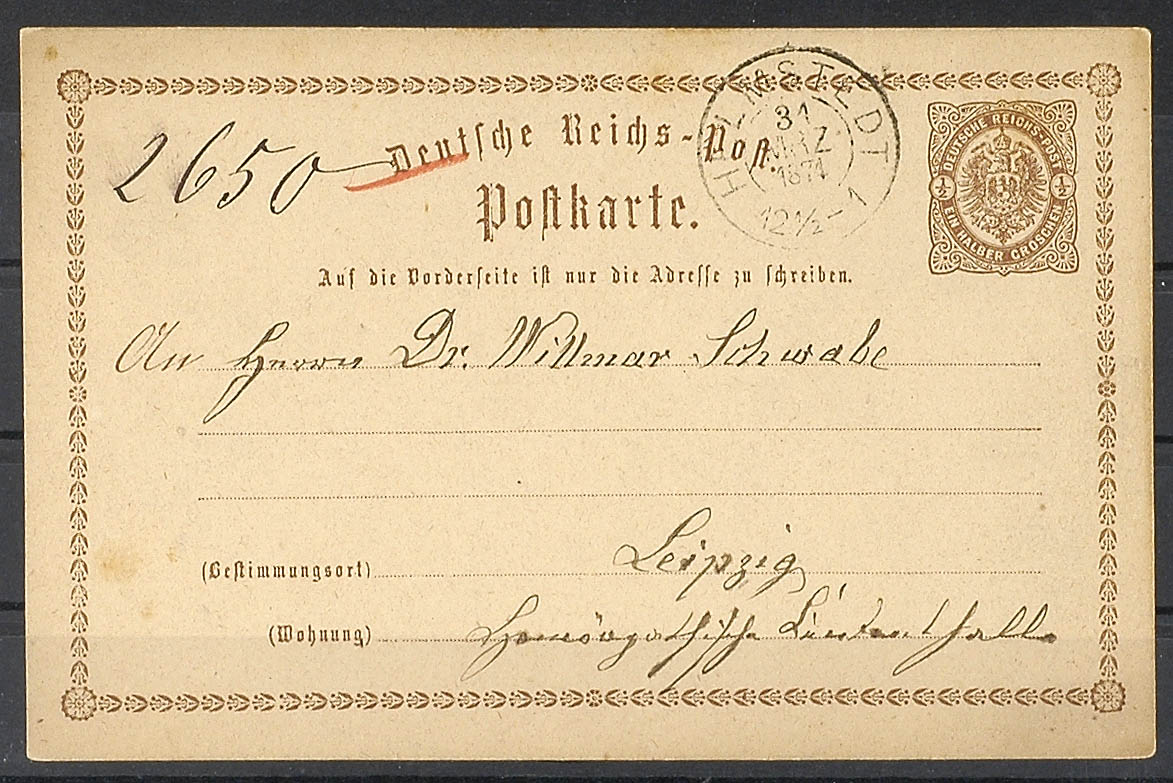 2650
Deutsche Reichs-Post
HELMSTEDT
31
MRZ
1874
12½-1
DEUTSCHE REICHS-POST
½ ½
EIN HALBER GROSCHEN
Postkarte.
Auf die Vorderseite ist nur die Adresse zu schreiben.
An Herrn Dr. Willmar Schwabe
(Bestimmungsort) Leipzig
(Wohnung) Homöopathische